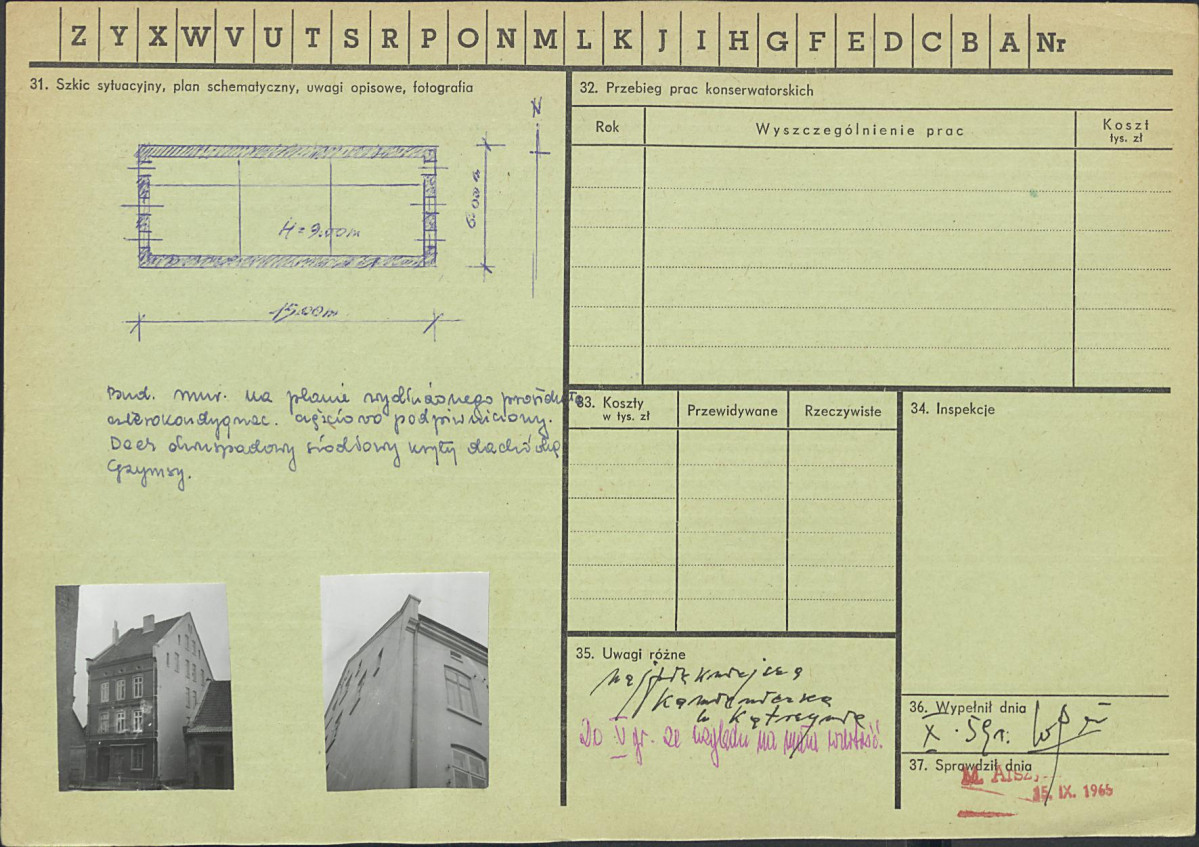 Z Y X W V U T S R P O N M L K J I H G F E D C B A Nr
31. Szkic sytuacyjny, plan schematyczny, uwagi opisowe, fotografia
N
H = 9.00m
6.00m
15.00m
Bud. mur. na planie wydłużonego prostokąta
czterokondygnac. częściowo podpiwniczony.
Dach dwuspadowy siodłowy kryty dachówką
Gzymsy.
32. Przebieg prac konserwatorskich
Rok
Wyszczególnienie prac
Koszt
tys. zł
33. Koszty
w tys. zł
Przewidywane
Rzeczywiste
34. Inspekcje
35. Uwagi różne
najpiękniejsza
kamieniczka
w Kętrzynie
Do V gr. ze względu na małą wartość.
36. Wypełnił dnia
X. 59r.
37. Sprawdził dnia
15. IX. 1965